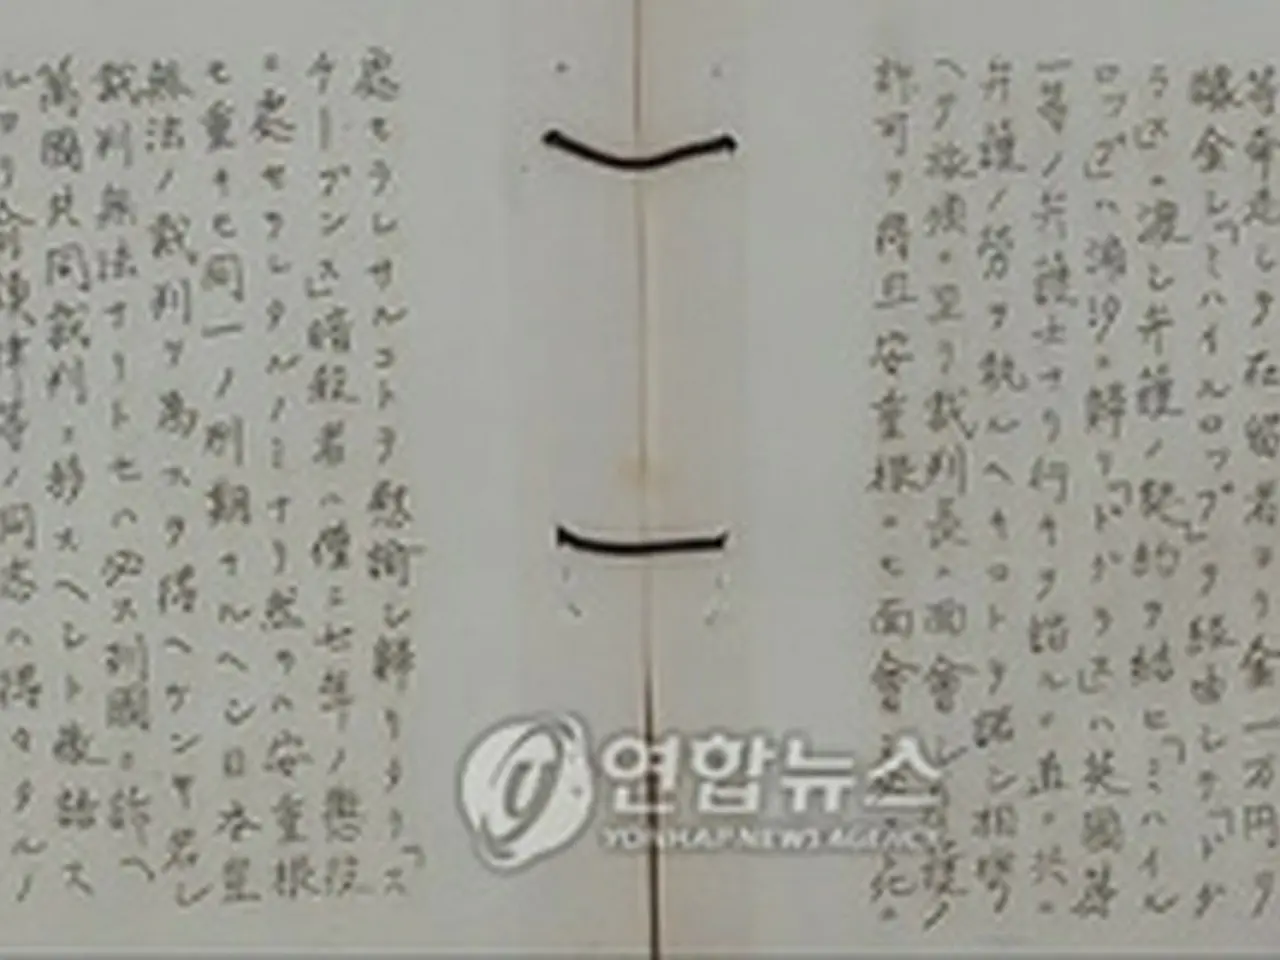 等奔走シテ在留者ヨリ金一万円ヲ
醵金シ「ミハイルロフ」ヲ経由シテ「ドグ
ラ氏ニ渡シ弁護ノ契約ヲ結ヒ「ミハイル
ロフ」氏ハ浦汐ニ歸リ「ドグラ氏ハ英國第
一等ノ弁護士ナリ行キヲ
弁護ノ勞ヲ執ルヘキコトヲ諾シ相携
ヘテ旅順ニ至リ裁判長ニ面會シ
許可ヲ得且安重根ニモ面會
處セラレサルコトヲ慰諭シ歸リタリ「ス
チーブンス」暗殺者ハ僅ニ七年ノ懲役
ニ處セラレタルノミナリ然ラハ安重根
モ重キモ同一ノ刑期ナルヘシ日本豈
無法ノ裁判ヲ為スヲ得ヘケンヤ若シ
裁判無法ナリトセハ必ス列國ニ訴ヘ
萬國共同裁判ニ移スヘシト激語ス
ルヨリ俞鎮律等ノ同志ハ
연합뉴스
YONHAP NEWS AGENCY